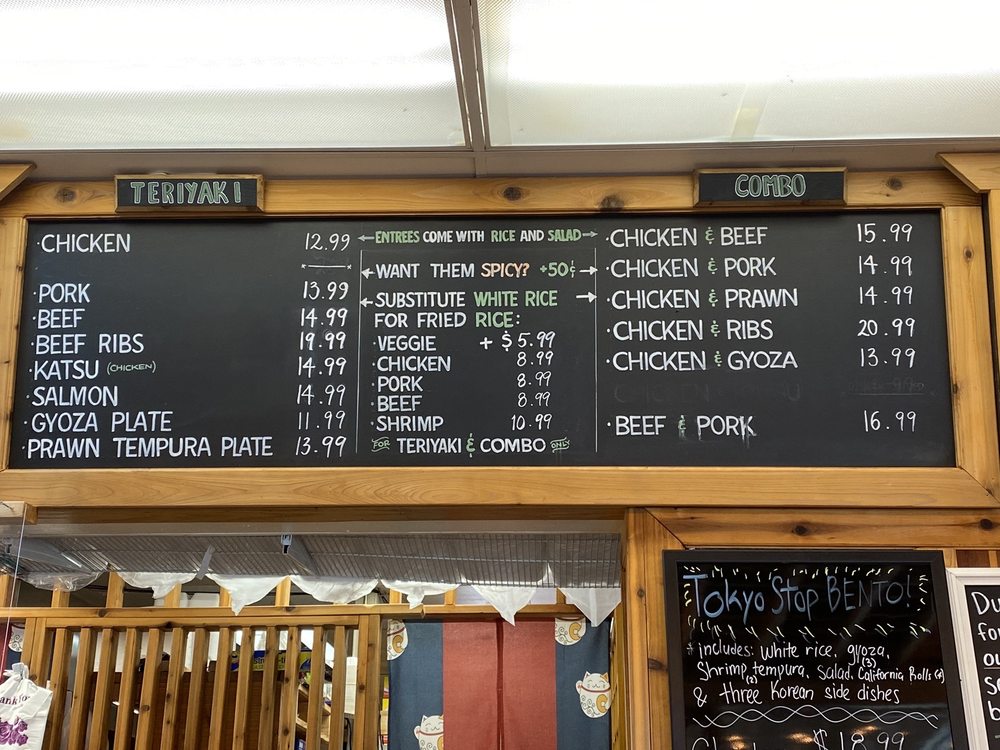 TERIYAKI
·CHICKEN 12.99
·PORK 13.99
·BEEF 14.99
·BEEF RIBS 19.99
·KATSU (CHICKEN) 14.99
·SALMON 14.99
·GYOZA PLATE 11.99
·PRAWN TEMPURA PLATE 13.99
←ENTREES COME WITH RICE AND SALAD→
←WANT THEM SPICY? +50¢→
←SUBSTITUTE WHITE RICE→
FOR FRIED RICE:
·VEGGIE + $5.99
·CHICKEN 8.99
·PORK 8.99
·BEEF 8.99
·SHRIMP 10.99
FOR TERIYAKI & COMBO ONLY
COMBO
·CHICKEN & BEEF 15.99
·CHICKEN & PORK 14.99
·CHICKEN & PRAWN 14.99
·CHICKEN & RIBS 20.99
·CHICKEN & GYOZA 13.99
·BEEF & PORK 16.99
Tokyo Stop BENTO!
* includes: white rice, gyoza, (3)
Shrimp tempura, (2) Salad, California Rolls (4)
& three Korean side dishes
$18.99